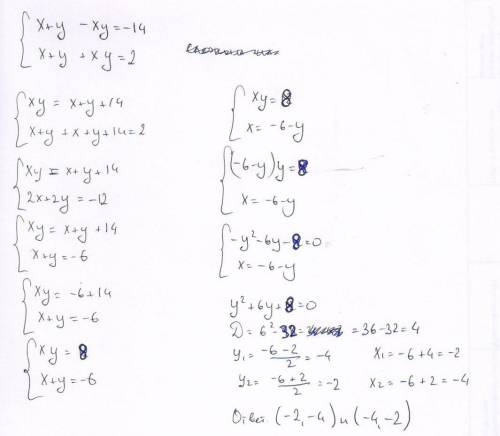 x+y -xy=-14
x+y +xy=2
xy = x+y+14
x+y+x+y+14=2
xy = x+y+14
2x+2y=-12
xy = x+y+14
x+y=-6
xy=-6+14
x+y=-6
xy=8
x+y=-6
xy=8
x=-6-y
(-6-y)y=8
x=-6-y
-y²-6y-8=0
x=-6-y
y²+6y+8=0
D=6²-32= =36-32=4
y₁=(-6-2)/2=-4 x₁=-6+4=-2
y₂=(-6+2)/2=-2 x₂=-6+2=-4
Ответ (-2,-4) и (-4,-2)